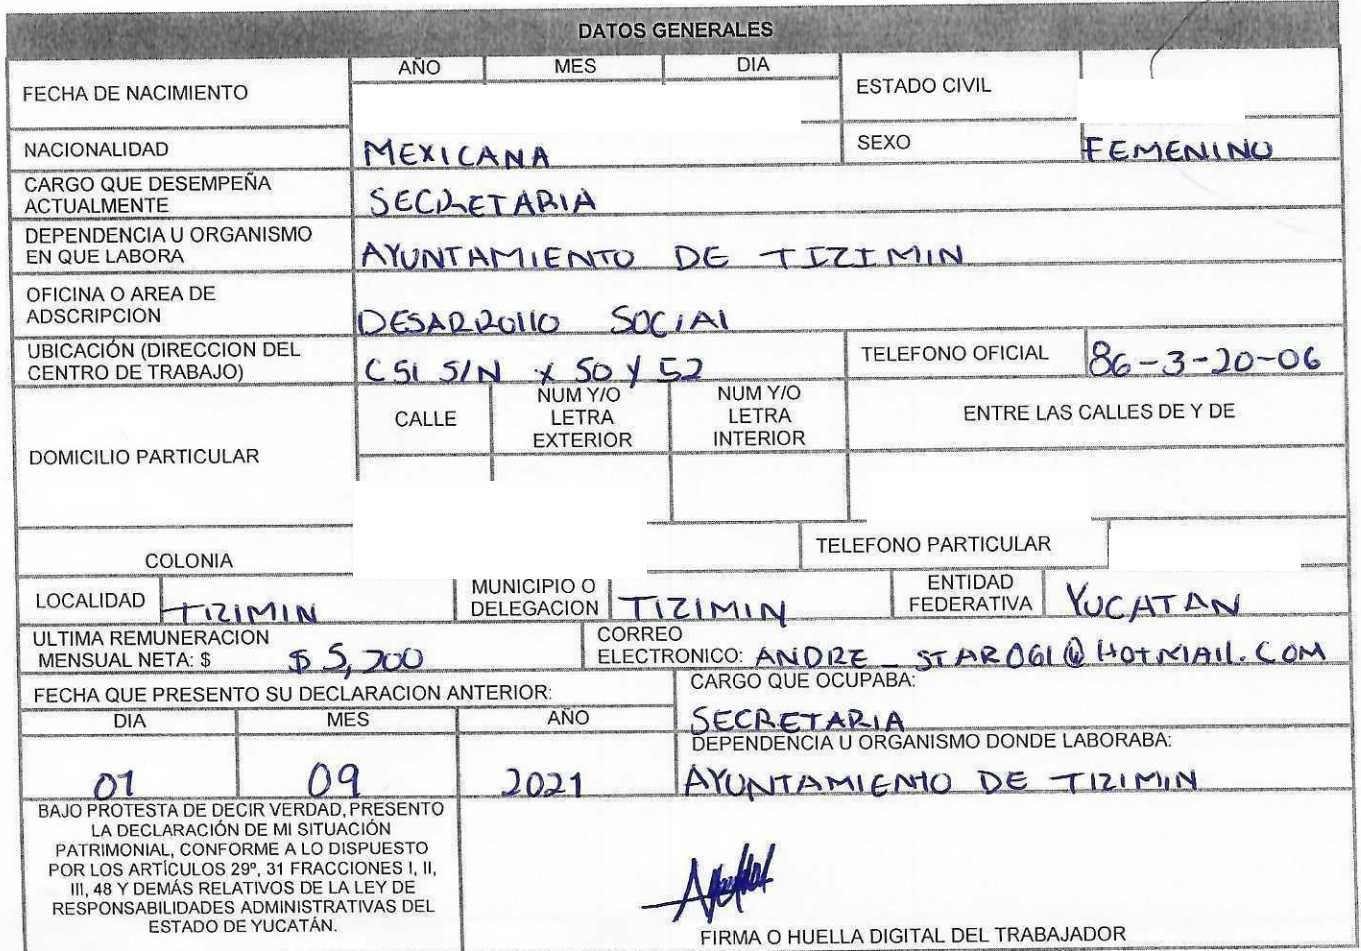 DATOS GENERALES
FECHA DE NACIMIENTO
AÑO MES DIA
ESTADO CIVIL
NACIONALIDAD MEXICANA
SEXO FEMENINO
CARGO QUE DESEMPEÑA
ACTUALMENTE
SECRETARIA
DEPENDENCIA U ORGANISMO
EN QUE LABORA
AYUNTAMIENTO DE TIZIMIN
OFICINA O AREA DE
ADSCRIPCION
DESARROllO SOCiAl
UBICACIÓN (DIRECCION DEL
CENTRO DE TRABAJO)
C 51 S/N x 50 Y 52
TELEFONO OFICIAL 86-3-20-06
DOMICILIO PARTICULAR
CALLE
NUM Y/O
LETRA
EXTERIOR
NUM Y/O
LETRA
INTERIOR
ENTRE LAS CALLES DE Y DE
COLONIA
TELEFONO PARTICULAR
LOCALIDAD TIZIMIN
MUNICIPIO O
DELEGACION TIZIMIN
ENTIDAD
FEDERATIVA YUCATAN
ULTIMA REMUNERACION
MENSUAL NETA: $ $ 5,200
CORREO
ELECTRONICO: ANDRE_STAR061@HOTMAIl.COM
FECHA QUE PRESENTO SU DECLARACION ANTERIOR:
DIA MES AÑO
01 09 2021
CARGO QUE OCUPABA:
SECRETARIA
DEPENDENCIA U ORGANISMO DONDE LABORABA:
AYUNTAMIENTO DE TIZIMIN
BAJO PROTESTA DE DECIR VERDAD, PRESENTO
LA DECLARACIÓN DE MI SITUACIÓN
PATRIMONIAL, CONFORME A LO DISPUESTO
POR LOS ARTÍCULOS 29º, 31 FRACCIONES I, II,
III, 48 Y DEMÁS RELATIVOS DE LA LEY DE
RESPONSABILIDADES ADMINISTRATIVAS DEL
ESTADO DE YUCATÁN.
FIRMA O HUELLA DIGITAL DEL TRABAJADOR